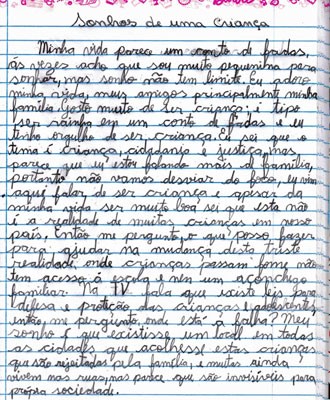 Sonhos de uma Criança
Minha vida parece um conto de fadas,
ás vezes acho que sou muito pequenina para
sonhar, mas sonho não tem limite. Eu adoro
minha vida, meus amigos principalmente minha
família. Gosto muito de ser criança; é tipo
ser rainha em um conto de fadas e eu
tenho orgulho de ser criança. Eu sei que o
tema é criança, cidadania e justiça, mas
parece que eu estou falando mais de família,
portanto não vamos desviar do foco, eu vim
aqui falar de ser criança e apesar da
minha vida ser muito boa sei que esta não
é a realidade de muitas crianças em nosso
país. Então me pergunto, o que posso fazer
para ajudar na mudança desta triste
realidade, onde crianças passam fome, não
tem acesso á escola e nem um aconchego
familiar. Na TV fala que existe leis para
defesa e proteção das crianças e adolescentes,
então, me pergunto, onde está a falha? Meu
sonho é que existisse um local em todas
as cidades que acolhesse estas crianças
que são rejeitadas pela família, e muitas ainda
vivem nas ruas, mas parece que são invisíveis para
própria sociedade.